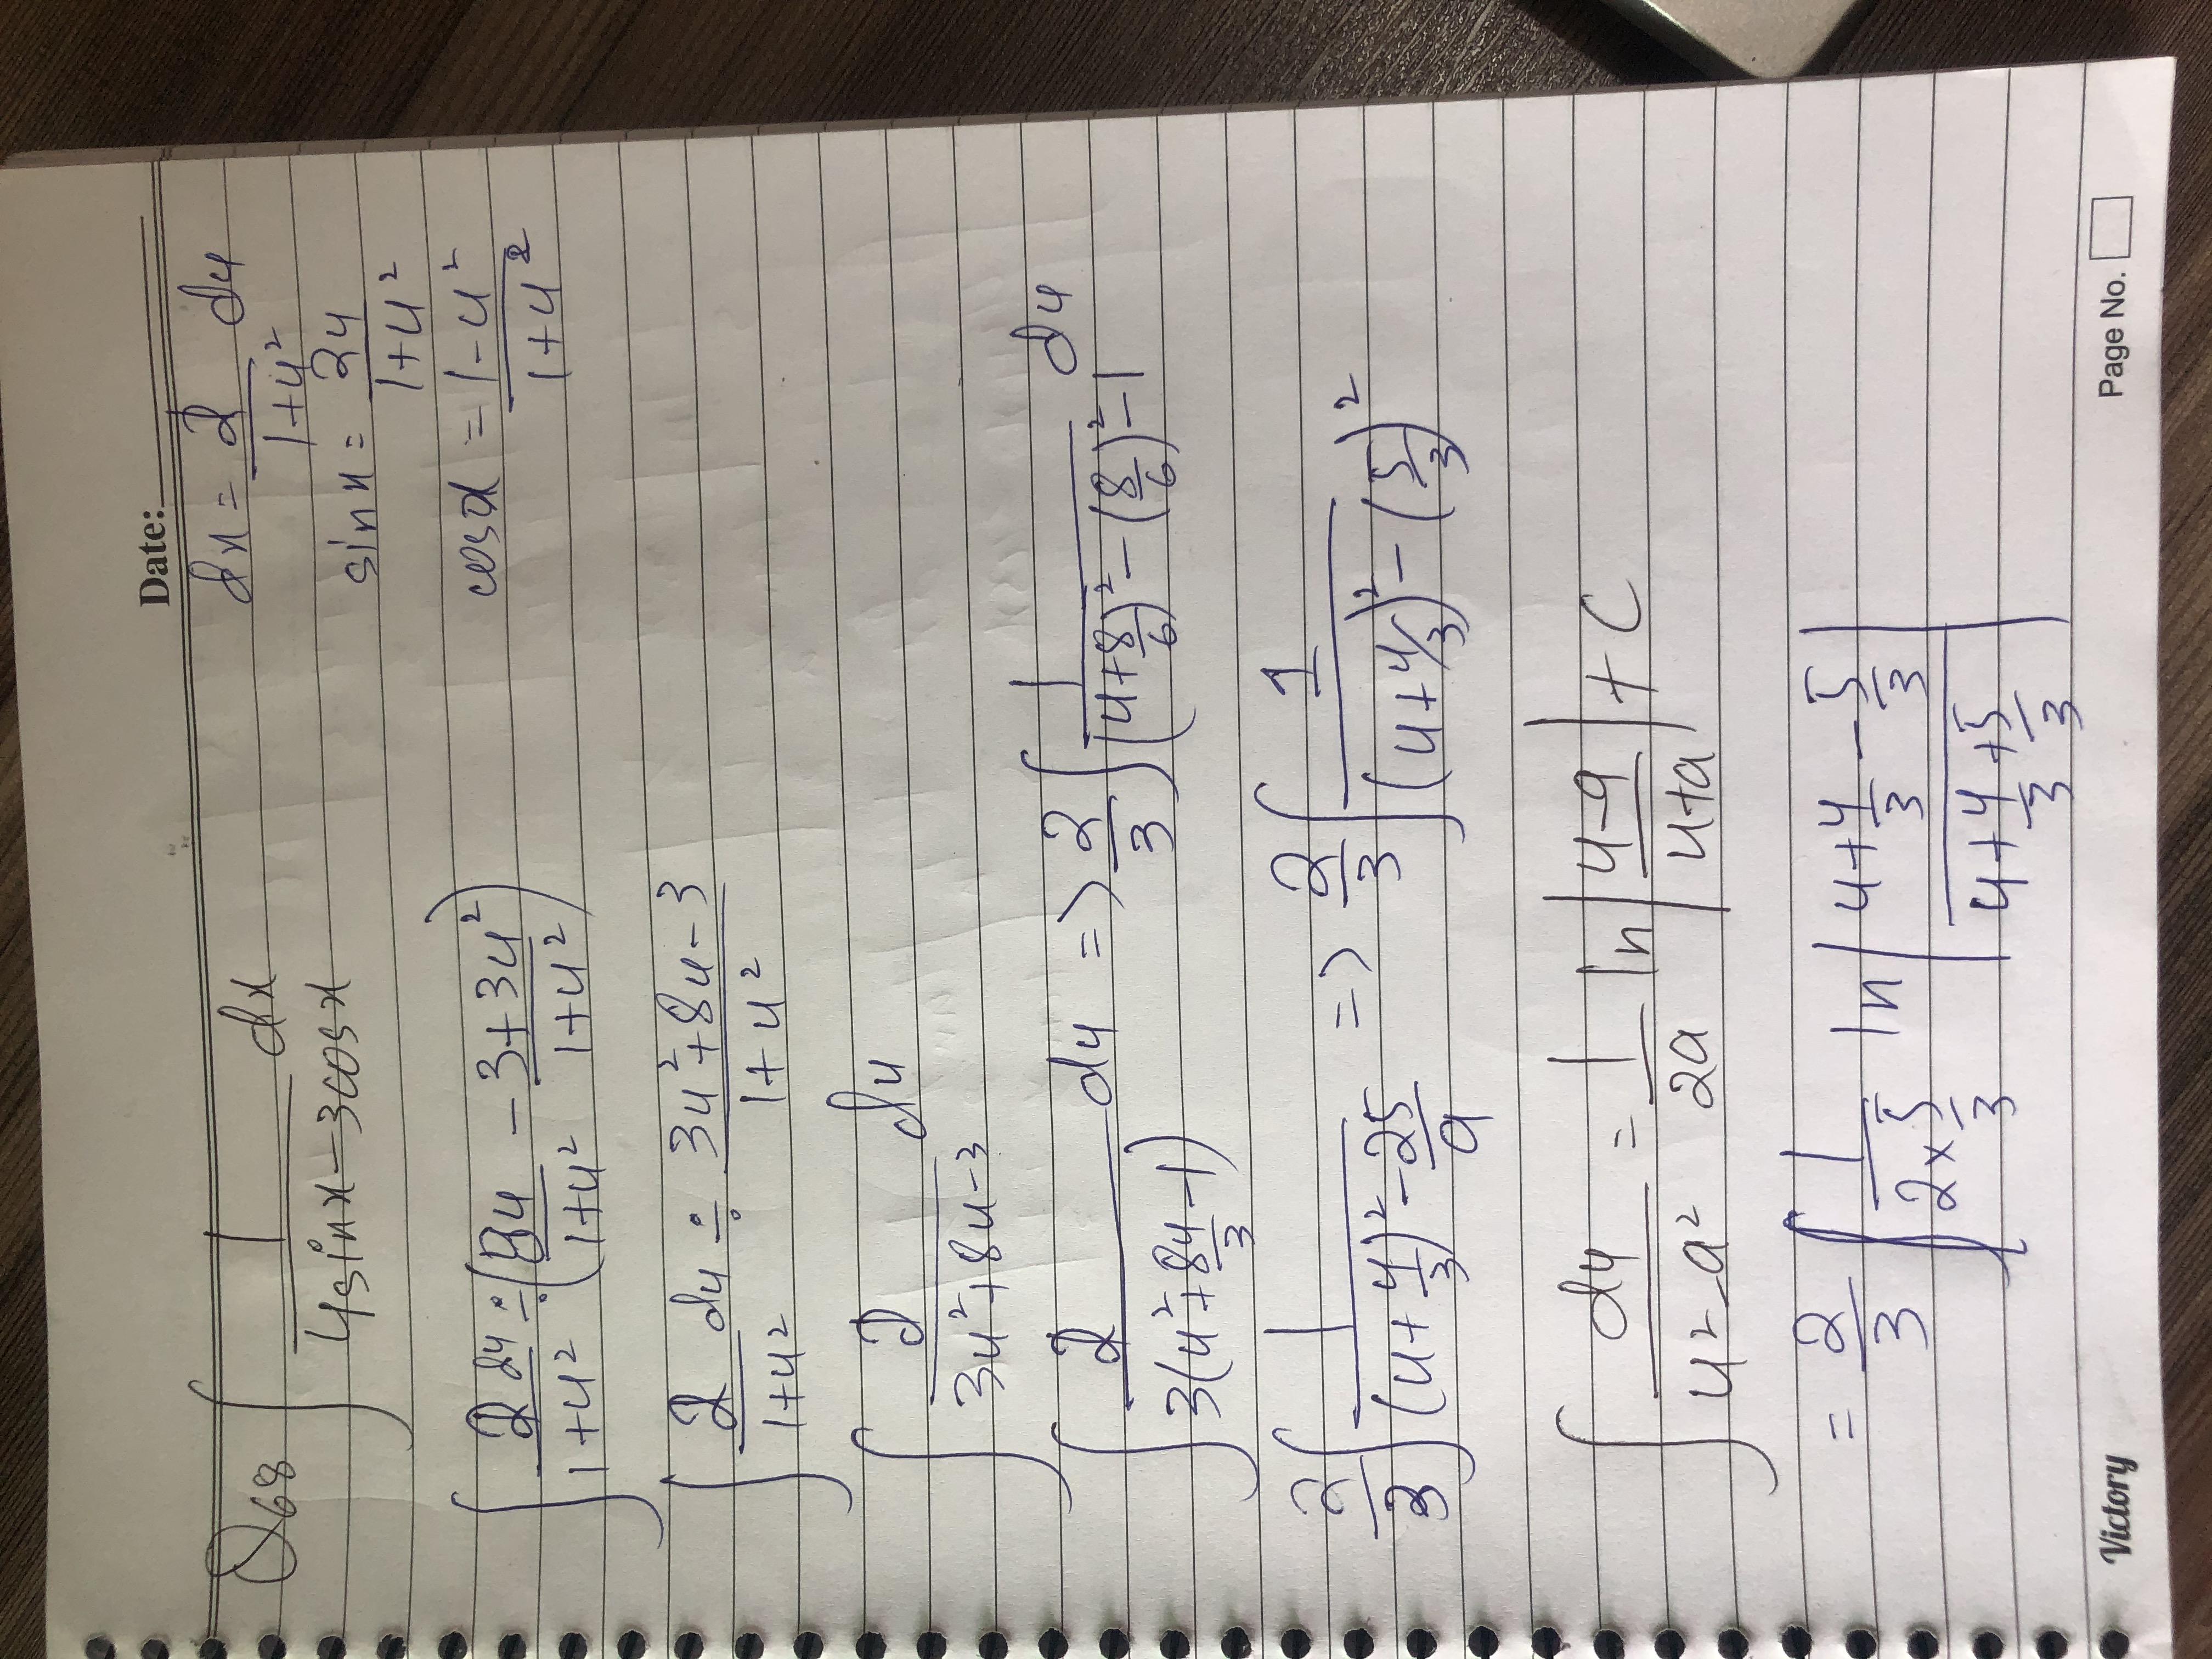 Date:
Q68 ∫ 1/(4sinx-3cosx) dx
dx = 2/(1+u²) du
sinx = 2u/(1+u²)
cosx = (1-u²)/(1+u²)
∫ 2du/(1+u²) ÷ (8u/(1+u²) (-3+3u²)/(1+u²))
∫ 2/(1+u²) du ÷ (3u²+8u-3)/(1+u²)
∫ 2/(3u²+8u-3) du
∫ 2/(3(u²+8u/3-1)) du => 2/3 ∫ 1/((u+8/6)²-(8/6)²-1) du
2/3 ∫ 1/((u+4/3)²-25/9) => 2/3 ∫ 1/((u+4/3)²-(5/3)²)
∫ du/(u²-a²) = 1/2a ln |(u-a)/(u+a)| + C
= 2/3 ∫ 1/(2×5/3) ln |(u+4/3-5/3)/(u+4/3+5/3)|
Victory
Page No.